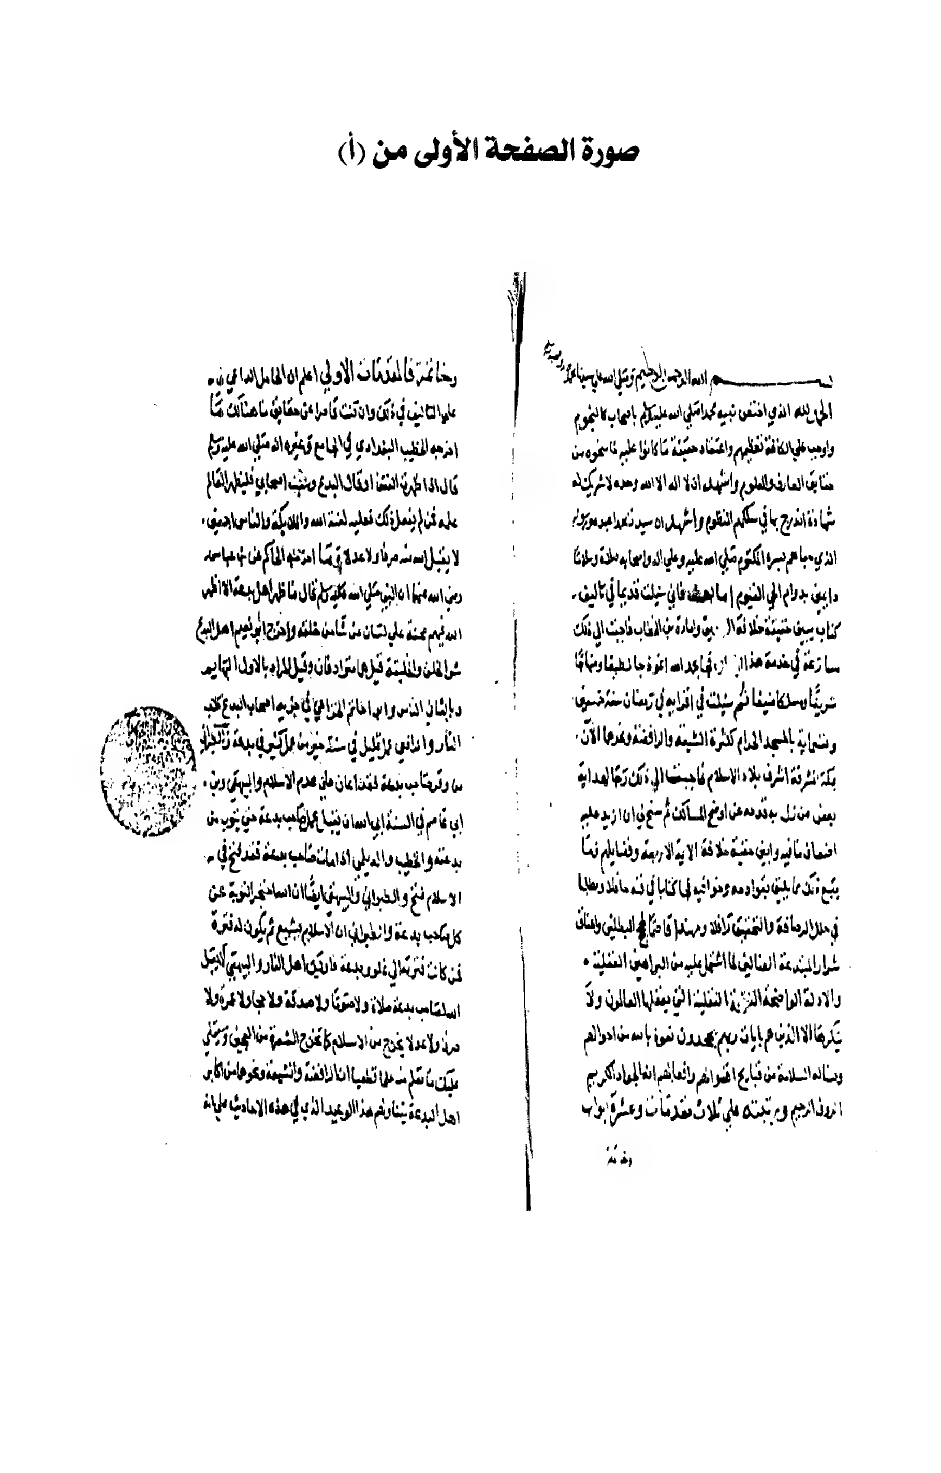 صورة الصفحة الأولى من (أ)
بسم الله الرحمن الرحيم وصلى الله على سيدنا محمد
الحمد لله الذي اختص نبيه محمدا صلى الله عليه وسلم باصحاب كالنجوم
واوجب على الكافة تعظيمهم واعتقاد حقيقة ما كانوا عليه لما منحوه من
حقايق المعارف والعلوم واشهد ان لا اله الا الله وحده لا شريك له
شهادة اندرج بها في سلكهم المنظوم واشهد ان سيدنا محمدا عبده ورسوله
الذي حباهم بسره المكتوم صلى الله عليه وعلى اله واصحابه صلاة وسلاما
دايمين بدوام الحي القيوم اما بعد فاني سئلت قديما في تاليف
كتاب يبين حقيقة خلافة الصديق وامارة بن الخطاب فاجبت الى ذلك
مسارعة في خدمة هذا الجناب فجا بحمد الله انموذجا لطيفا ومنهاجا
شريفا ومسلكا منيفا ثم سئلت في اقرايه في رمضان سنة خمسين
وتسعماية بالمسجد الحرام لكثرة الشيعة والرافضة ونحوهما الآن
بمكة المشرفة اشرف بلاد الاسلام فاجبت الى ذلك رجا لهداية
بعض من زل به قدمه عن اوضح المسالك ثم سنح لي ان ازيد عليه
اضعاف ما فيه وابين حقية خلافة الايمة الاربعة وفضايلهم وما
يتبع ذلك مما يليق بقوادمه وخوافيه فجا كتابا في فنه حافلا ومطلبا
في حلل الرصانة والتحقيق رافلا ومهندا قاصما لحجج المبطلين واعناق
شرار المبتدعة الضالين لما اشتمل عليه من البراهين العقلية
والادلة الواضحة النقلية التي يعقلها العالمون ولا
ينكرها الا الذين هم بايات ربهم يجحدون نعوذ بالله من احوالهم
ونساله السلامة من قبايح اقوالهم وافعالهم انه الجواد الكريم
الروف الرحيم ورتبته على ثلاث مقدمات وعشرة ابواب
وخاتمة
وخاتمة فالمقدمات الاولى اعلم ان الحامل الداعي لي
على التاليف في ذلك وان كنت قاصرا عن حقايق ما هنالك ما
اخرجه الخطيب البغدادي في الجامع وغيره انه صلى الله عليه وسلم
قال اذا ظهرت الفتن او قال البدع وسب اصحابي فليظهر العالم
علمه فمن لم يفعل ذلك فعليه لعنة الله والملايكة والناس اجمعين
لا يقبل الله منه صرفا ولا عدلا وما اخرجه الحاكم عن ابن عباس
رضي الله عنهما ان النبي صلى الله عليه وسلم قال ما ظهر اهل بدعة الا اظهر
الله فيهم حجته على لسان من شا من خلقه واخرج ابو نعيم اهل البدع
شر الخلق والخليقة قيل هما مترادفان وقيل المراد بالاول البهايم
وبالثاني الناس وابو حاتم الخزاعي في جزيه اصحاب البدع كلاب
النار والرافعي عمل قليل في سنة خير من عمل كثير في بدعة والطبراني
من وقر صاحب بدعة فقد اعان على هدم الاسلام والبيهقي وابن
ابي عاصم في السنة ابى الله ان يقبل عمل صاحب بدعة حتى يتوب من
بدعته والخطيب والديلمي اذا مات صاحب بدعة فقد فتح في
الاسلام فتح والطبراني والبيهقي ايضا ان الله احتجر التوبة عن
كل صاحب بدعة والطبراني ان الاسلام يشيع ثم يكون له فترة
فمن كانت فترته الى غلو وبدعة فاوليك اهل النار والبيهقي لا يقبل
الله لصاحب بدعة صلاة ولا صوما ولا صدقة ولا حجا ولا عمرة ولا
صرفا ولا عدلا يخرج من الاسلام كما تخرج الشعرة من العجين وسيتلى
عليك ما تعلم منه علما قطعيا ان الرافضة والشيعة ونحوهما من اكابر
اهل البدعة فيتناولهم هذا الوعيد الذي في هذه الاحاديث على انه